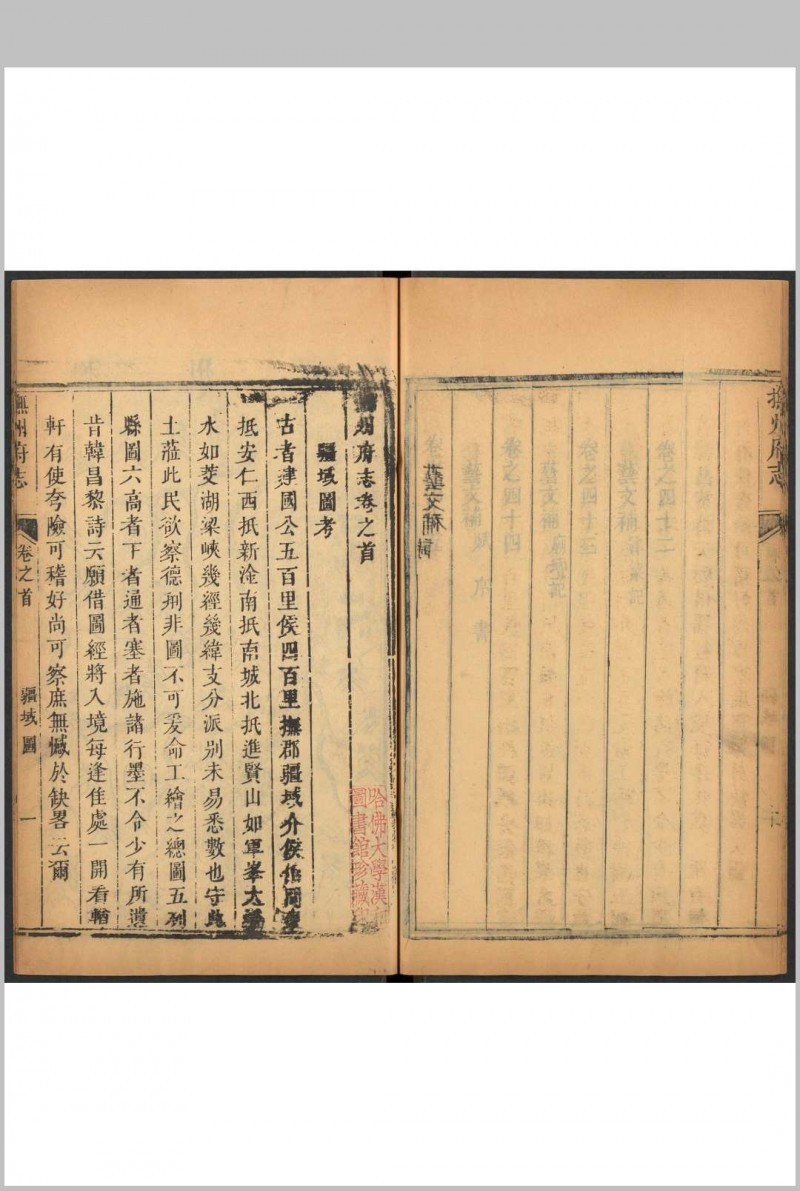 撫州府志
藝文補 詩
撫州府志卷之首
疆域圖考
古者建國公五百里侯四百里撫郡疆域介侯伯間東
抵安仁西抵新淦南抵南城北抵進賢山如軍峯大
水如菱湖梁峽幾經幾緯支分派別未易悉數也守此
土蒞此民欲察德刑非圖不可爰命工繪之總圖五列
縣圖六高者下者通者塞者施諸行墨不令少有所遺
昔韓昌黎詩云願借圖經將入境每逢佳處一開看輶
軒有使夸險可稽好尚可察庶無憾於缺畧云爾
撫州府志
卷之首
疆域圖
一
哈佛大學漢和
圖書館珍藏印